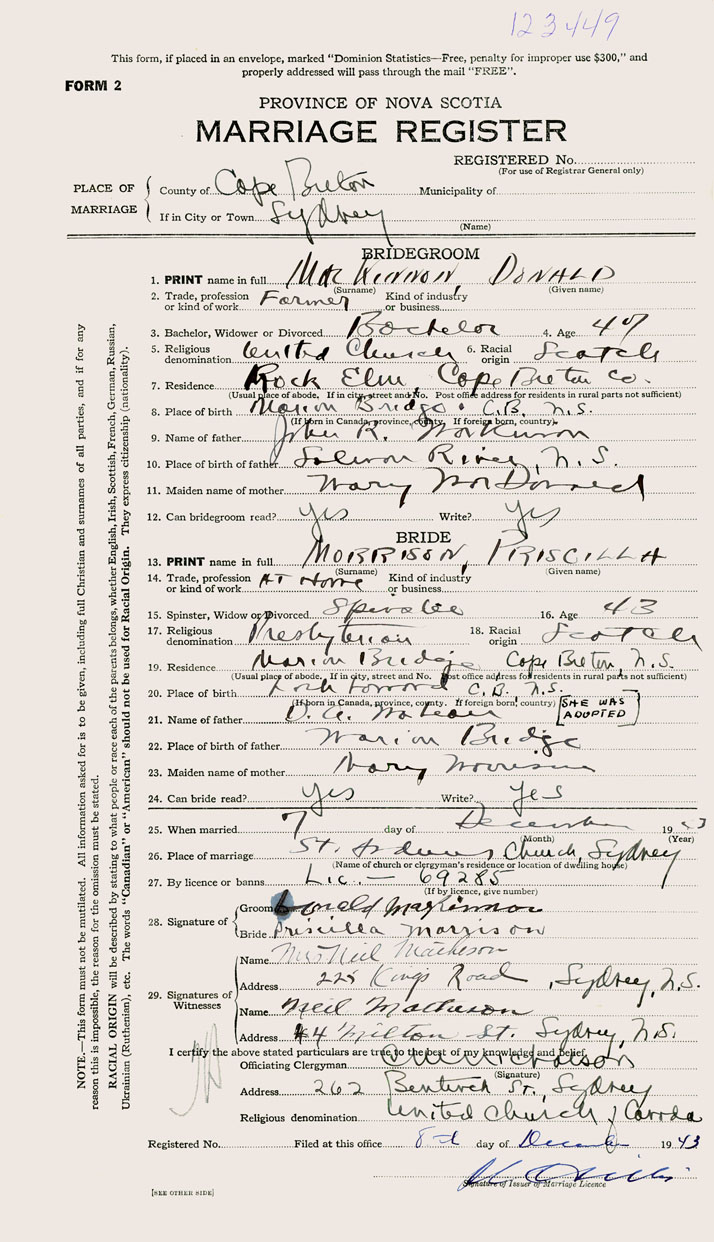 123449
This form, if placed in an envelope, marked "Dominion Statistics—Free, penalty for improper use $300," and
properly addressed will pass through the mail "FREE".
FORM 2
PROVINCE OF NOVA SCOTIA
MARRIAGE REGISTER
REGISTERED No.
(For use of Registrar General only)
PLACE OF MARRIAGE
County of Cape Breton Municipality of
If in City or Town Sydney
(Name)
BRIDEGROOM
1. PRINT name in full MacKinnon, Donald
(Surname) (Given name)
2. Trade, profession or kind of work Farmer Kind of industry or business
3. Bachelor, Widower or Divorced Bachelor 4. Age 47
5. Religious denomination United Church 6. Racial origin Scotch
7. Residence Rock Elm, Cape Breton Co.
(Usual place of abode. If in city, street and No. Post office address for residents in rural parts not sufficient)
8. Place of birth Marion Bridge, C.B. N.S.
(If born in Canada, province, county. If foreign born, country)
9. Name of father John R. MacKinnon
10. Place of birth of father Salmon River, N.S.
11. Maiden name of mother Mary MacDonald
12. Can bridegroom read? yes Write? yes
BRIDE
13. PRINT name in full MORRISON, PRISCILLA
(Surname) (Given name)
14. Trade, profession or kind of work AT Home Kind of industry or business
15. Spinster, Widow or Divorced Spinster 16. Age 43
17. Religious denomination Presbyterian 18. Racial origin Scotch
19. Residence Marion Bridge Cape Breton, N.S.
(Usual place of abode. If in city, street and No. Post office address for residents in rural parts not sufficient)
20. Place of birth Loch Lomond C.B., N.S.
(If born in Canada, province, county. If foreign born, country)
SHE WAS ADOPTED
21. Name of father D. A. McLean
22. Place of birth of father Marion Bridge
23. Maiden name of mother Mary Morrison
24. Can bride read? yes Write? yes
25. When married 7 day of December 1943
(Month) (Year)
26. Place of marriage St. Andrews Church, Sydney
(Name of church or clergyman's residence or location of dwelling house)
27. By licence or banns Lic. — 69285
(If by licence, give number)
28. Signature of
Groom Donald MacKinnon
Bride Priscilla Morrison
29. Signatures of Witnesses
Name Mrs Neil Matheson
Address 225 Kings Road, Sydney, N.S.
Name Neil Matheson
Address 44 Milton St. Sydney, N.S.
I certify the above stated particulars are true to the best of my knowledge and belief.
Officiating Clergyman Nicholson
(Signature)
Address 262 Bentinck St., Sydney
Religious denomination United Church / Canada
Registered No. Filed at this office 8th day of December 1943
Signature of Issuer of Marriage Licence
[SEE OTHER SIDE]
NOTE.—This form must not be mutilated. All information asked for is to be given, including full Christian and surnames of all parties, and if for any
reason this is impossible, the reason for the omission must be stated.
RACIAL ORIGIN will be described by stating to what people or race each of the parents belongs, whether English, Irish, Scottish, French, German, Russian,
Ukrainian (Ruthenian), etc. The words "Canadian" or "American" should not be used for Racial Origin. They express citizenship (nationality).